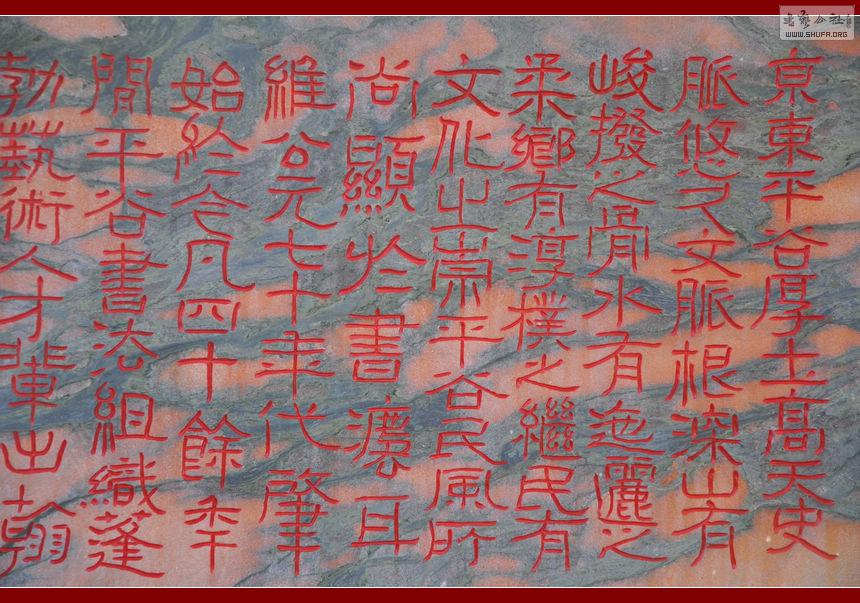 京東平谷厚土高天史
脈悠久文脈根深山有
峻撥之骨水有迤邐之
柔鄉有淳樸之繼民有
文化之崇平谷民風所
尚顯於書灋耳
維公元七十年代肇
始於今凡四十餘年
間平谷書法組織蓬
勃藝術人才輩出翰
書藝公社
WWW.SHUFA.ORG